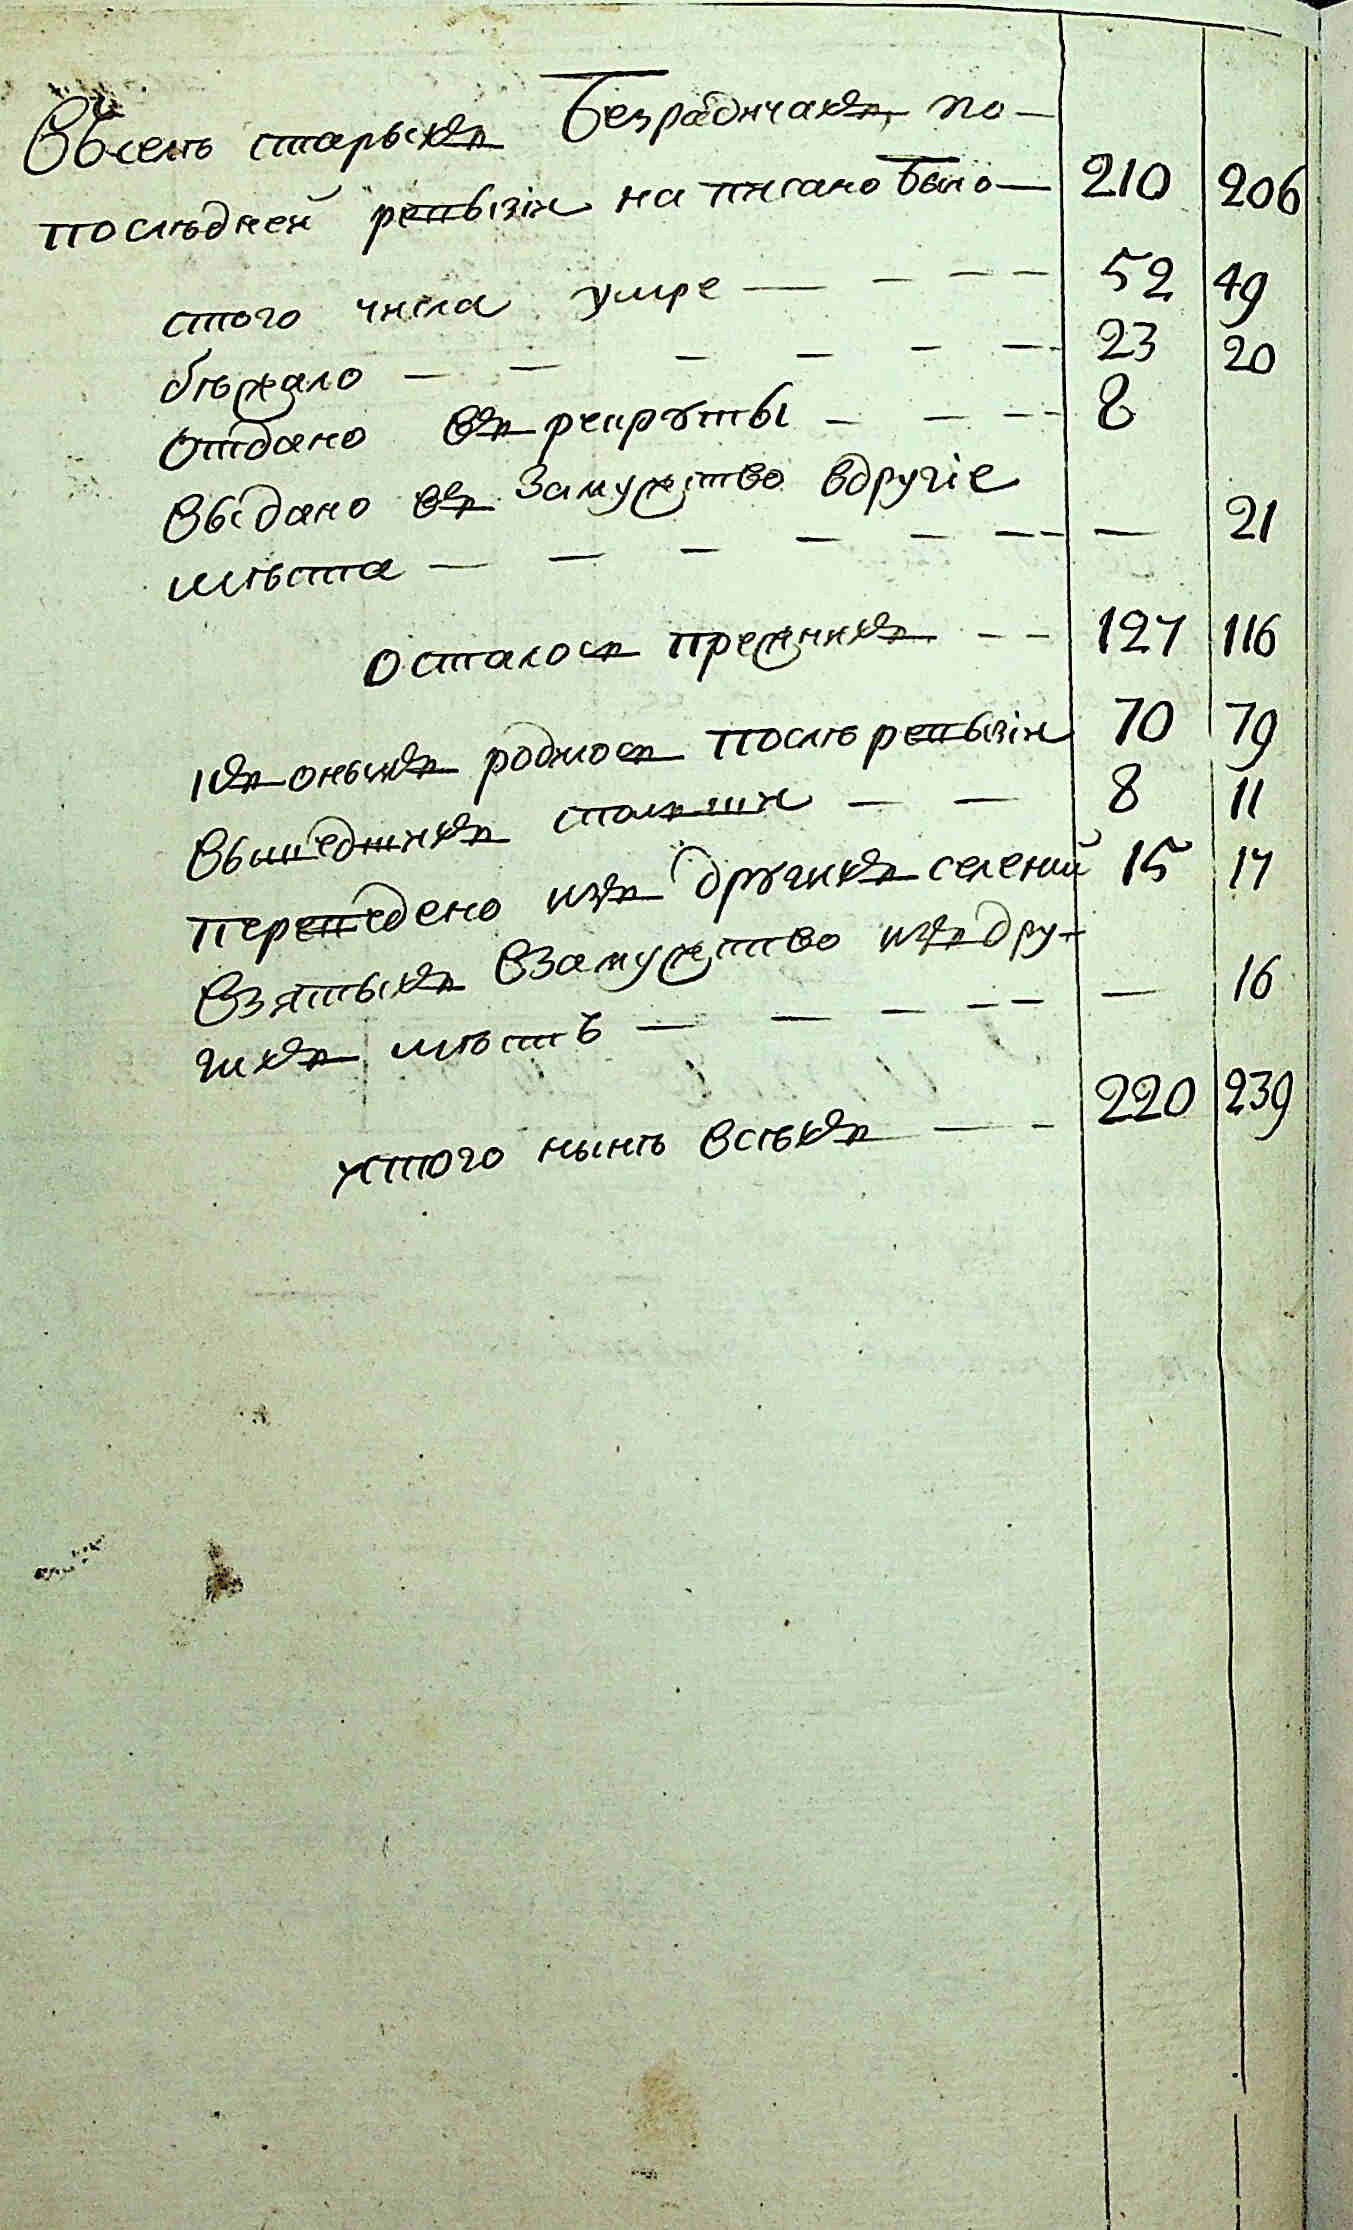 Вселѣ старыхъ Безрадичахъ, по-
послѣдней ревизіи написано было — 210 206
стого числа умре — — — — 52 49
бѣжало — — — — — — 23 20
отдано въ рекруты — — — — 8
выдано въ замужство вдругіе
мѣста — — — — — — — — 21
осталось прежнихъ — — 127 116
къ онымъ родилось послѣ ревизіи 70 79
вышедшихъ спольши — — 8 11
переведено изъ другихъ селений 15 17
взятыхъ взамужство издру-
гихъ мѣстъ — — — — — — 16
итого нынѣ всѣхъ — — 220 239